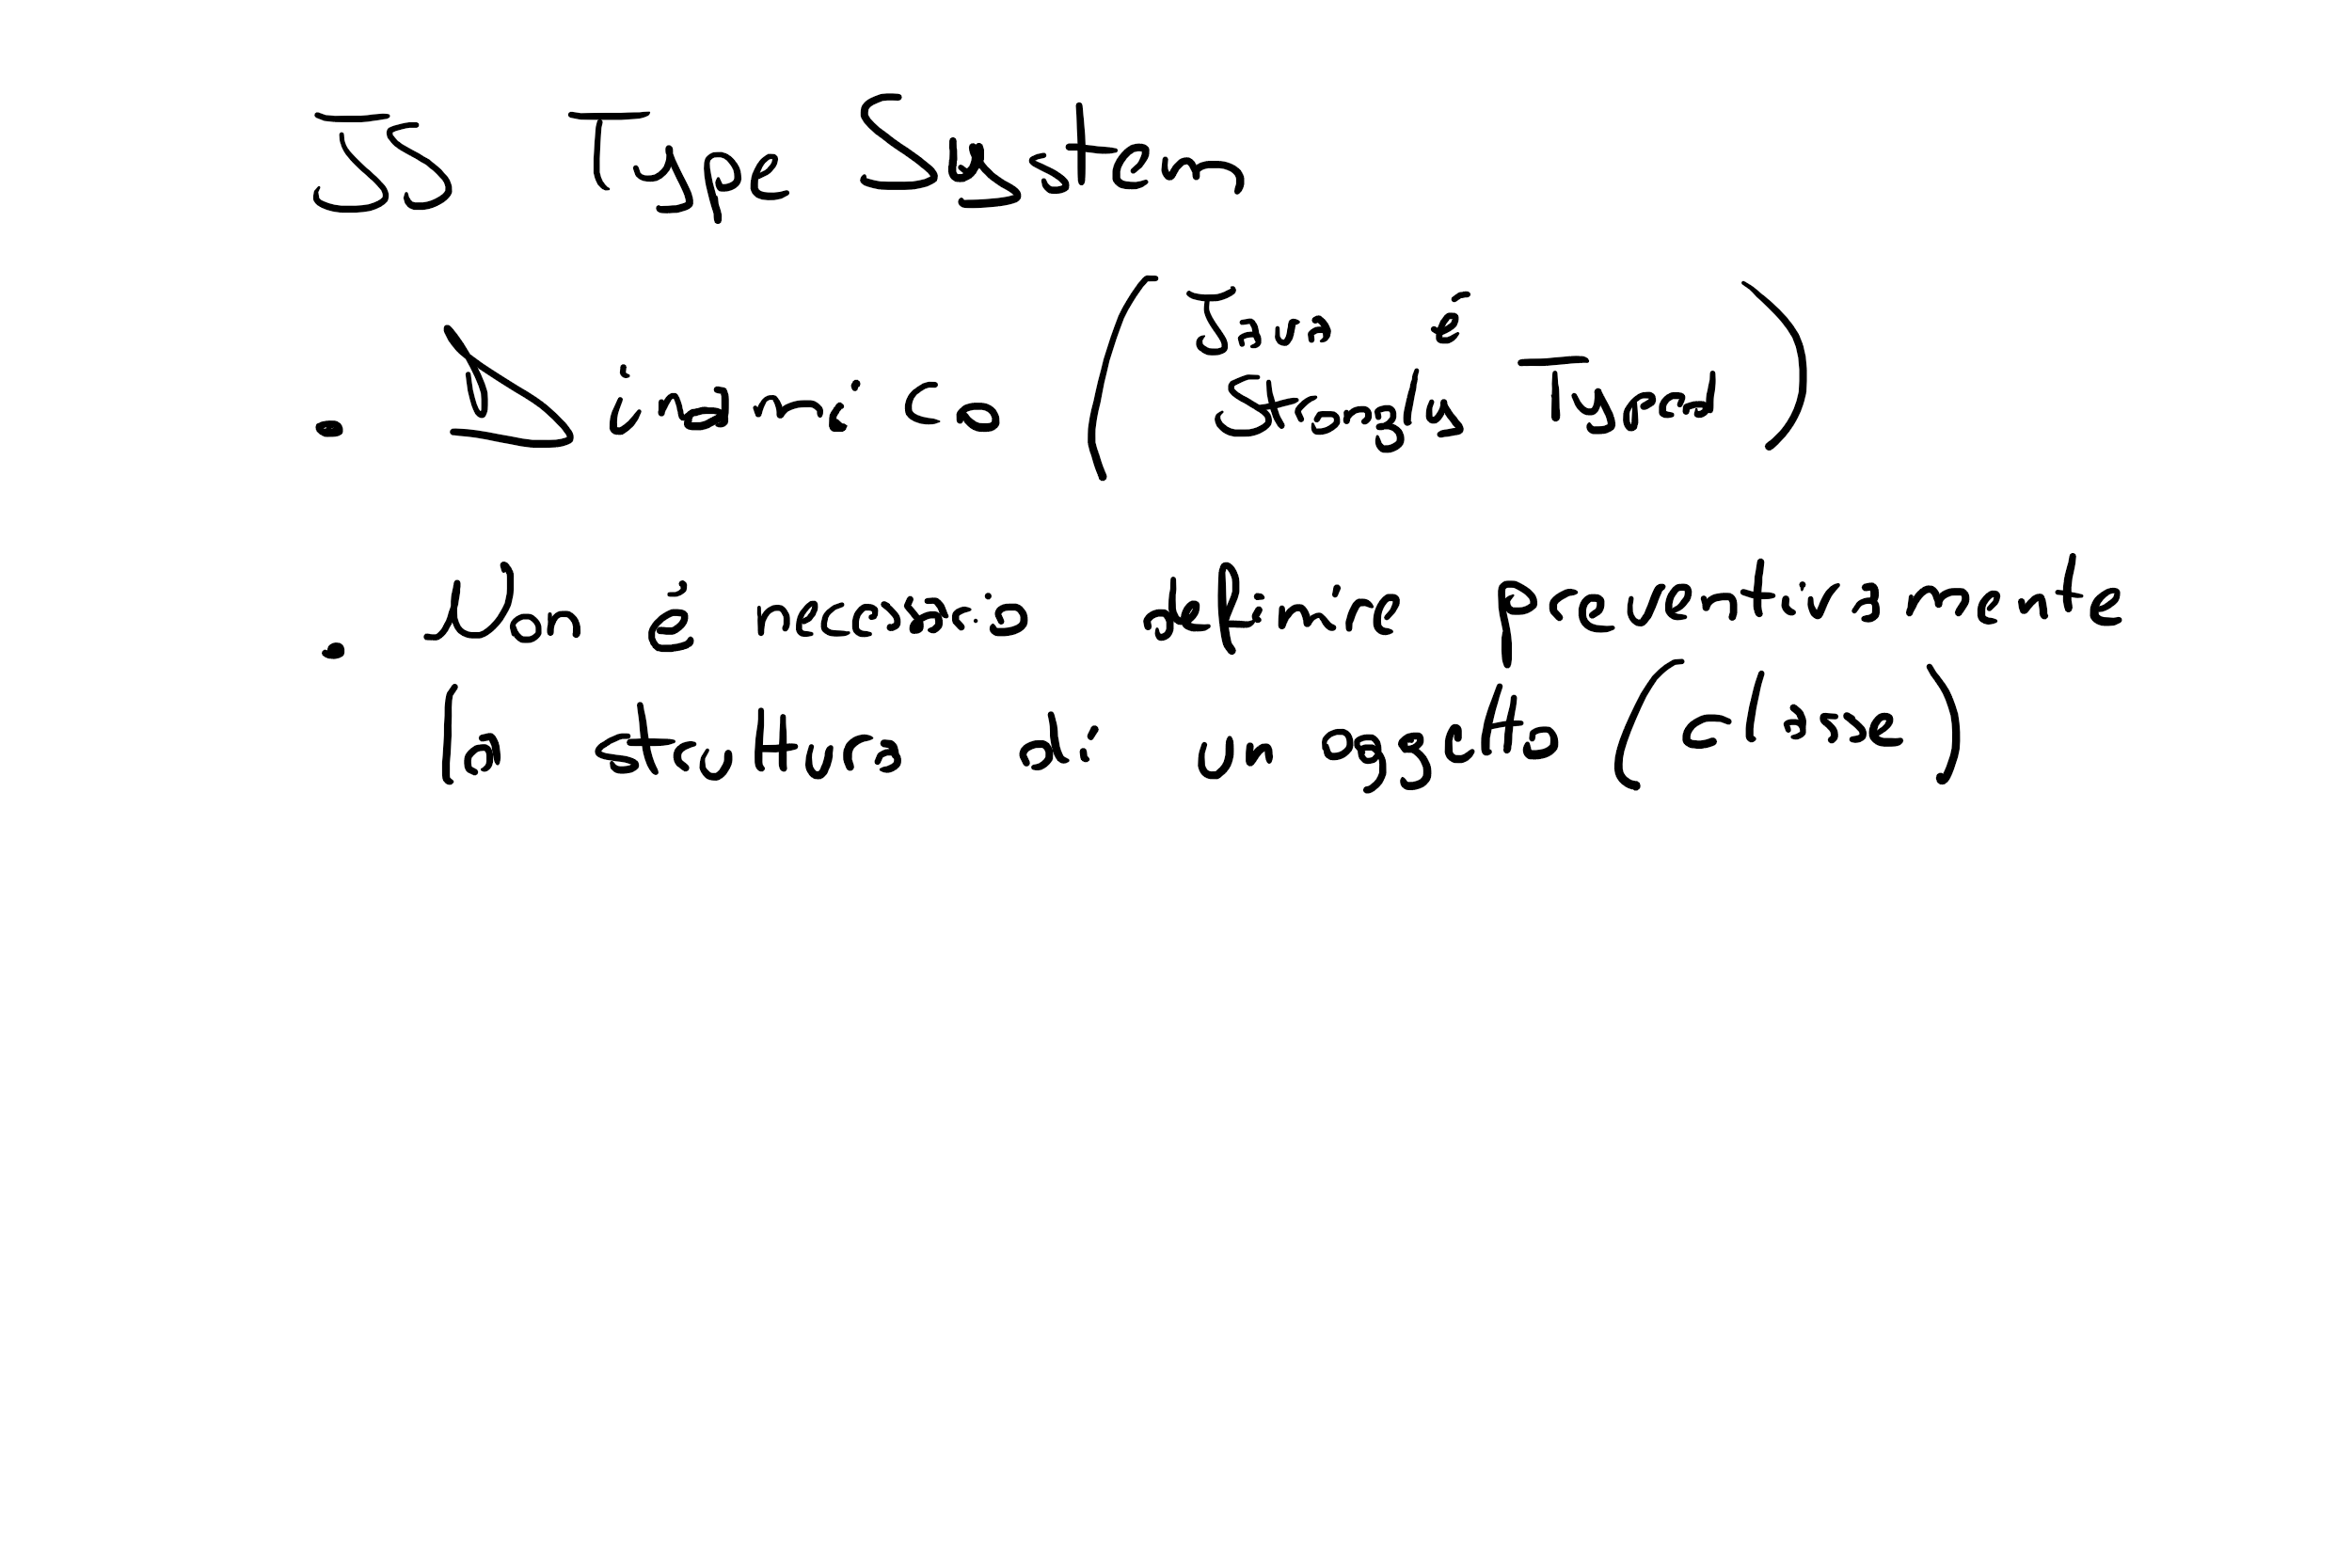 JS Type System
• Dinamico (Java é
Strongly Typed)
• Non é necessario definire preventivamente
la struttura di un oggetto (classe)